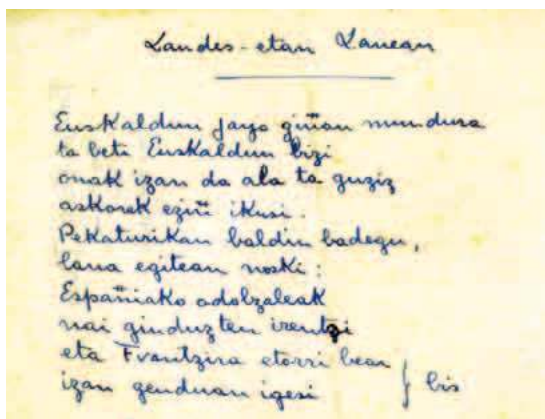 Landes-etan Lanean
Euskaldun jayo giñan mundura
ta beti Euskaldun bizi
onak izan da ala ta guziz
askorek eziñ ikusi.
Pekaturikan baldin badegu,
lana egitean noski:
Españiako odolzaleak
nai ginduzten irentzi
eta Frantzira etorri bear
izan genduan igesi } bis